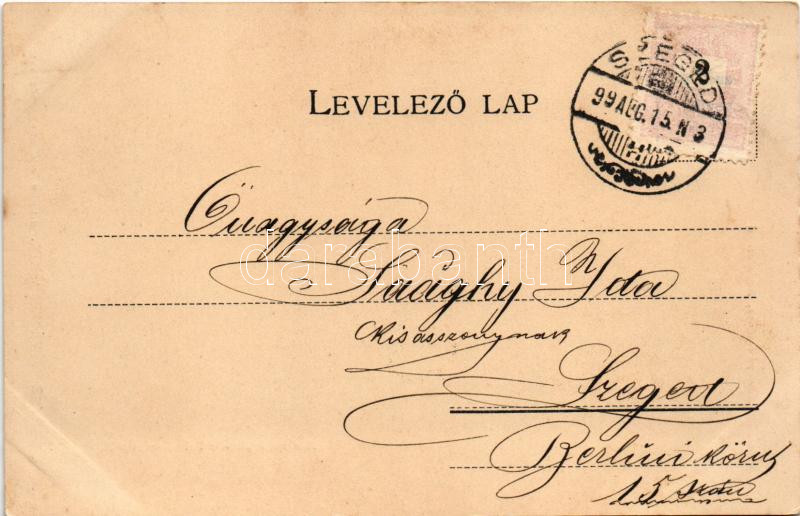 LEVELEZŐ LAP
SZEGED
99 AUG. 15. N 3
Őnagysága
Sághy Ida
kisasszonynak
Szeged
Berlini körut
15 szám
darabanth